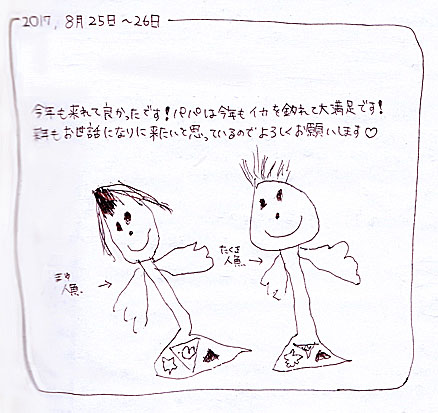 2017, 8月25日〜26日
今年も来れて良かったです！パパは今年もイカを釣れて大満足です！
来年もお世話になりに来たいと思っているのでよろしくお願いします♡
たくま
人魚
人魚